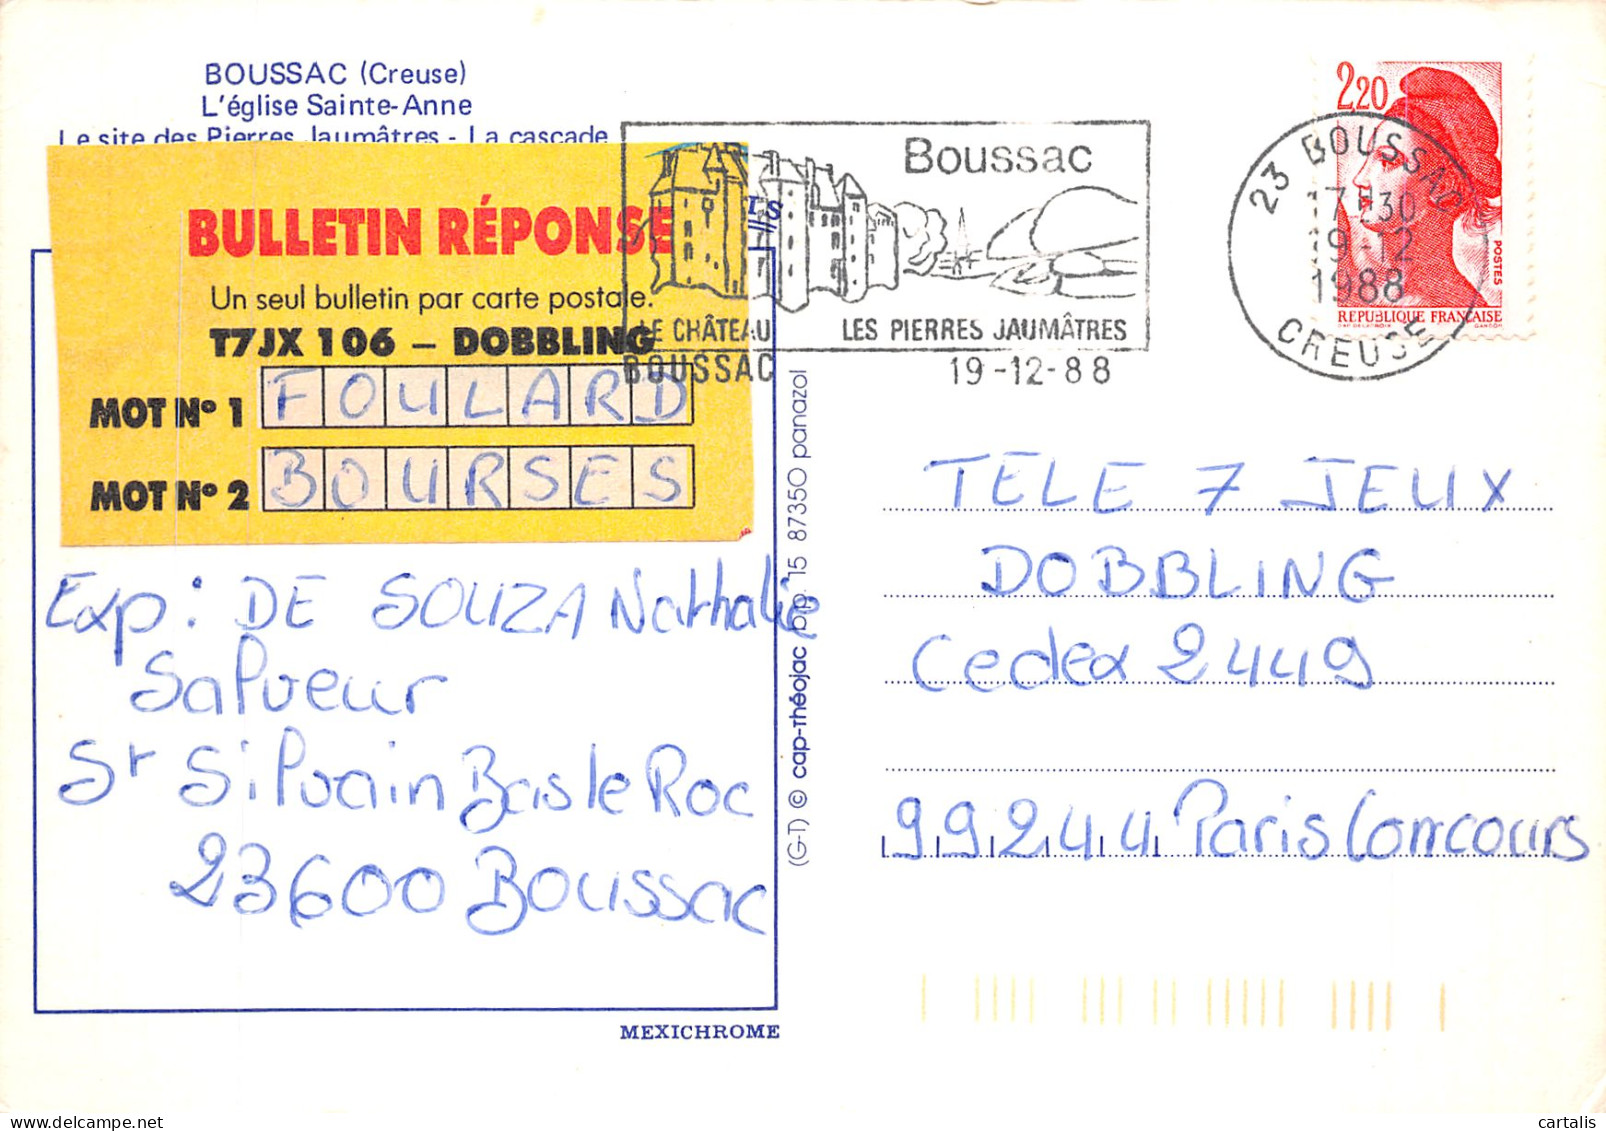 BOUSSAC (Creuse)
L'église Sainte-Anne
Le site des Pierres Jaumâtres - La cascade
BULLETIN RÉPONSE
Un seul bulletin par carte postale.
T7JX 106 – DOBBLING
MOT N° 1 FOULARD
MOT N° 2 BOURSES
Exp: DE SOUZA Nathalie
Salveur
St Silvain Bas le Roc
23600 Boussac
MEXICHROME
(G-T) © cap-théojac b.p. 15 87350 panazol
Boussac
LE CHÂTEAU LES PIERRES JAUMÂTRES
BOUSSAC 19-12-88
23 BOUSSAC
17H30
19-12
1988
CREUSE
2,20
POSTES
REPUBLIQUE FRANÇAISE
TELE 7 JEUX
DOBBLING
Cedex 2449
99244 Paris Concours
cartalis